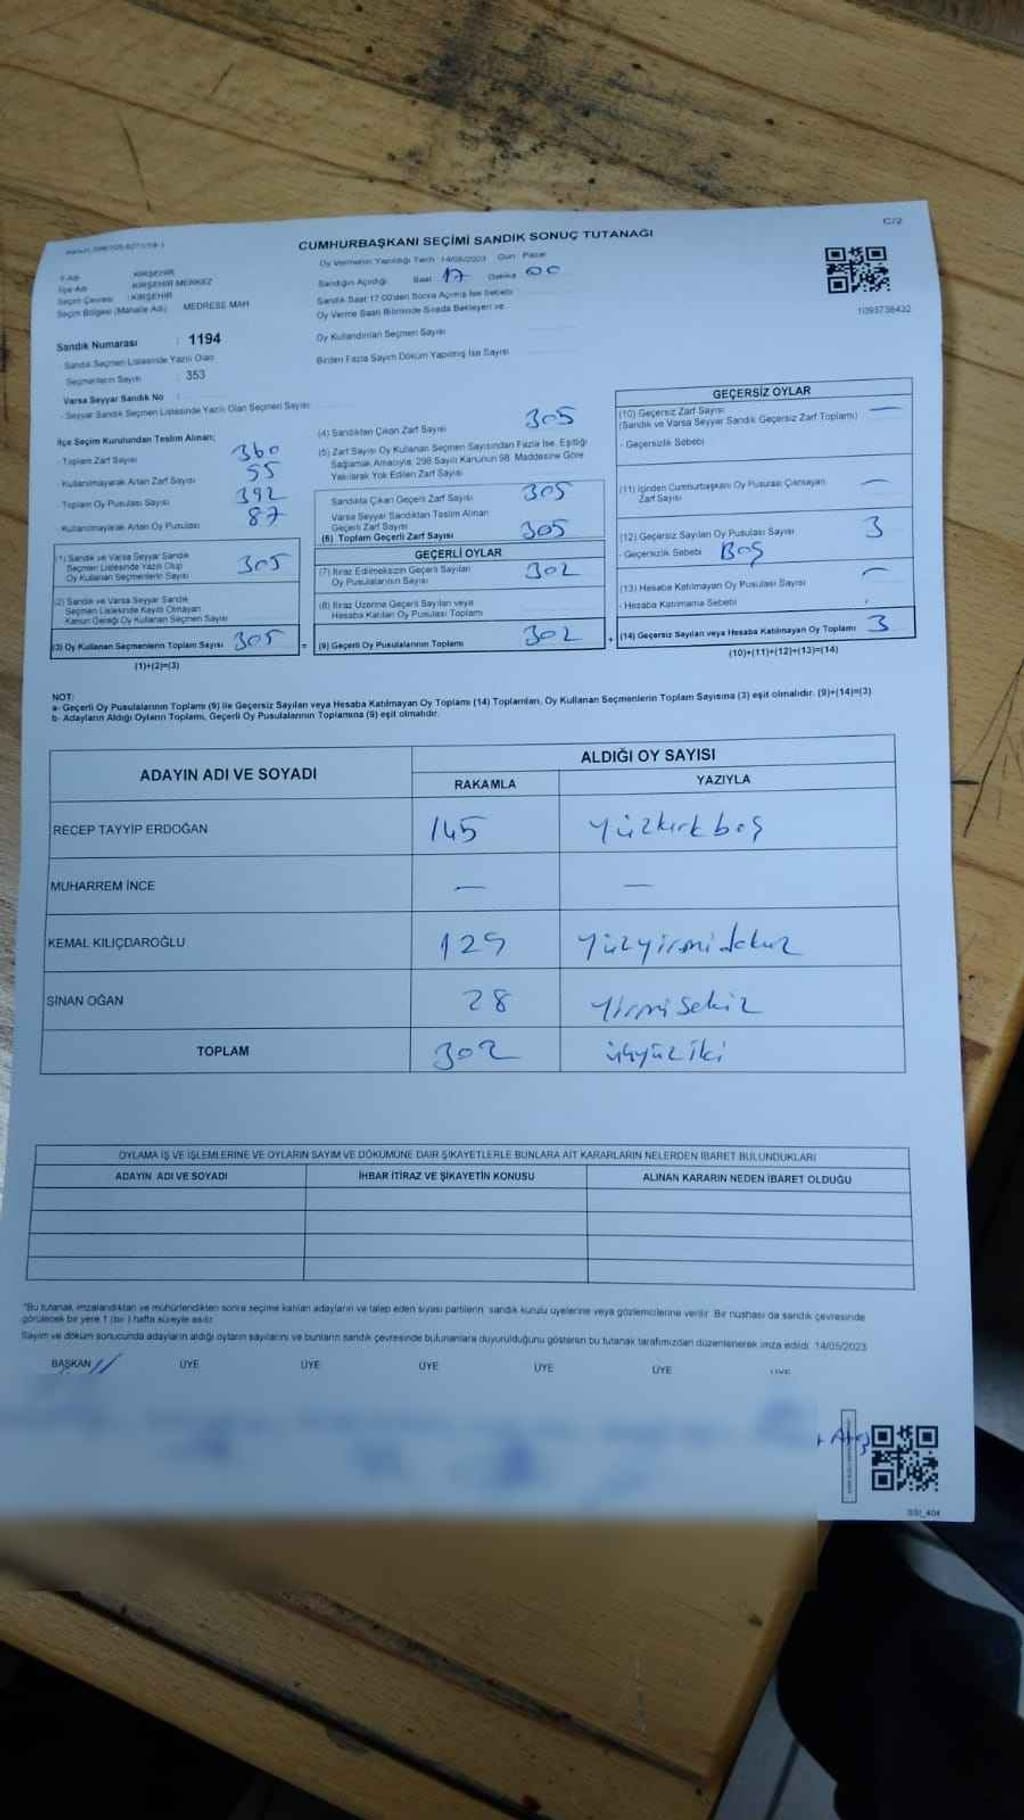 C/2
CUMHURBAŞKANI SEÇİMİ SANDIK SONUÇ TUTANAĞI
Oy Vermenin Yapıldığı Tarih 14/05/2023 Gün Pazar
İl Adı KIRŞEHİR
İlçe Adı KIRŞEHİR MERKEZ
Seçim Çevresi : KIRŞEHİR
Seçim Bölgesi (Mahalle Adı) MEDRESE MAH
Sandığın Açıldığı Saat 17 Dakika 00
Sandık Saat 17.00'den Sonra Açılmış İse Sebebi
Oy Verme Saati Bitiminde Sırada Bekleyen ve
Oy Kullandırılan Seçmen Sayısı
Birden Fazla Sayım Döküm Yapılmış İse Sayısı
1093738432
Sandık Numarası : 1194
Sandık Seçmen Listesinde Yazılı Olan
Seçmenlerin Sayısı : 353
Varsa Seyyar Sandık No
- Seyyar Sandık Seçmen Listesinde Yazılı Olan Seçmen Sayısı
İlçe Seçim Kurulundan Teslim Alınan;
- Toplam Zarf Sayısı 360
- Kullanılmayarak Artan Zarf Sayısı 55
- Toplam Oy Pusulası Sayısı 392
- Kullanılmayarak Artan Oy Pusulası 87
(1) Sandık ve Varsa Seyyar Sandık
Seçmen Listesinde Yazılı Olup
Oy Kullanan Seçmenlerin Sayısı 305
(2) Sandık ve Varsa Seyyar Sandık
Seçmen Listesinde Kayıtlı Olmayan
Kanun Gereği Oy Kullanan Seçmen Sayısı
(3) Oy Kullanan Seçmenlerin Toplam Sayısı 305
(1)+(2)=(3)
(4) Sandıktan Çıkan Zarf Sayısı 305
(5) Zarf Sayısı Oy Kullanan Seçmen Sayısından Fazla İse, Eşitliği
Sağlamak Amacıyla, 298 Sayılı Kanunun 98. Maddesine Göre
Yakılarak Yok Edilen Zarf Sayısı
Sandıkta Çıkan Geçerli Zarf Sayısı 305
Varsa Seyyar Sandıktan Teslim Alınan
Geçerli Zarf Sayısı
(6) Toplam Geçerli Zarf Sayısı 305
GEÇERLİ OYLAR
(7) İtiraz Edilmeksizin Geçerli Sayılan
Oy Pusulalarının Sayısı 302
(8) İtiraz Üzerine Geçerli Sayılan veya
Hesaba Katılan Oy Pusulası Toplamı
= (9) Geçerli Oy Pusulalarının Toplamı 302
GEÇERSİZ OYLAR
(10) Geçersiz Zarf Sayısı —
(Sandık ve Varsa Seyyar Sandık Geçersiz Zarf Toplamı)
- Geçersizlik Sebebi
(11) İçinden Cumhurbaşkanı Oy Pusulası Çıkmayan —
Zarf Sayısı
(12) Geçersiz Sayılan Oy Pusulası Sayısı 3
- Geçersizlik Sebebi Boş
(13) Hesaba Katılmayan Oy Pusulası Sayısı —
- Hesaba Katılmama Sebebi
+ (14) Geçersiz Sayılan veya Hesaba Katılmayan Oy Toplamı 3
(10)+(11)+(12)+(13)=(14)
NOT:
a- Geçerli Oy Pusulalarının Toplamı (9) ile Geçersiz Sayılan veya Hesaba Katılmayan Oy Toplamı (14) Toplamları, Oy Kullanan Seçmenlerin Toplam Sayısına (3) eşit olmalıdır. (9)+(14)=(3)
b- Adayların Aldığı Oyların Toplamı, Geçerli Oy Pusulalarının Toplamına (9) eşit olmalıdır.
ADAYIN ADI VE SOYADI ALDIĞI OY SAYISI
RAKAMLA YAZIYLA
RECEP TAYYİP ERDOĞAN 145 yüzkırkbeş
MUHARREM İNCE — —
KEMAL KILIÇDAROĞLU 129 yüzyirmidokuz
SİNAN OĞAN 28 yirmisekiz
TOPLAM 302 üçyüziki
OYLAMA İŞ VE İŞLEMLERİNE VE OYLARIN SAYIM VE DÖKÜMÜNE DAİR ŞİKAYETLERLE BUNLARA AİT KARARLARIN NELERDEN İBARET BULUNDUKLARI
ADAYIN ADI VE SOYADI İHBAR İTİRAZ VE ŞİKAYETİN KONUSU ALINAN KARARIN NEDEN İBARET OLDUĞU
*Bu tutanak, imzalandıktan ve mühürlendikten sonra seçime katılan adayların ve talep eden siyasi partilerin, sandık kurulu üyelerine veya gözlemcilerine verilir. Bir nüshası da sandık çevresinde
görülecek bir yere 1 (bir) hafta süreyle asılır.
Sayım ve döküm sonucunda adayların aldığı oyların sayılarını ve bunların sandık çevresinde bulunanlara duyurulduğunu gösteren bu tutanak tarafımızdan düzenlenerek imza edildi. 14/05/2023
BAŞKAN ÜYE ÜYE ÜYE ÜYE ÜYE ÜYE